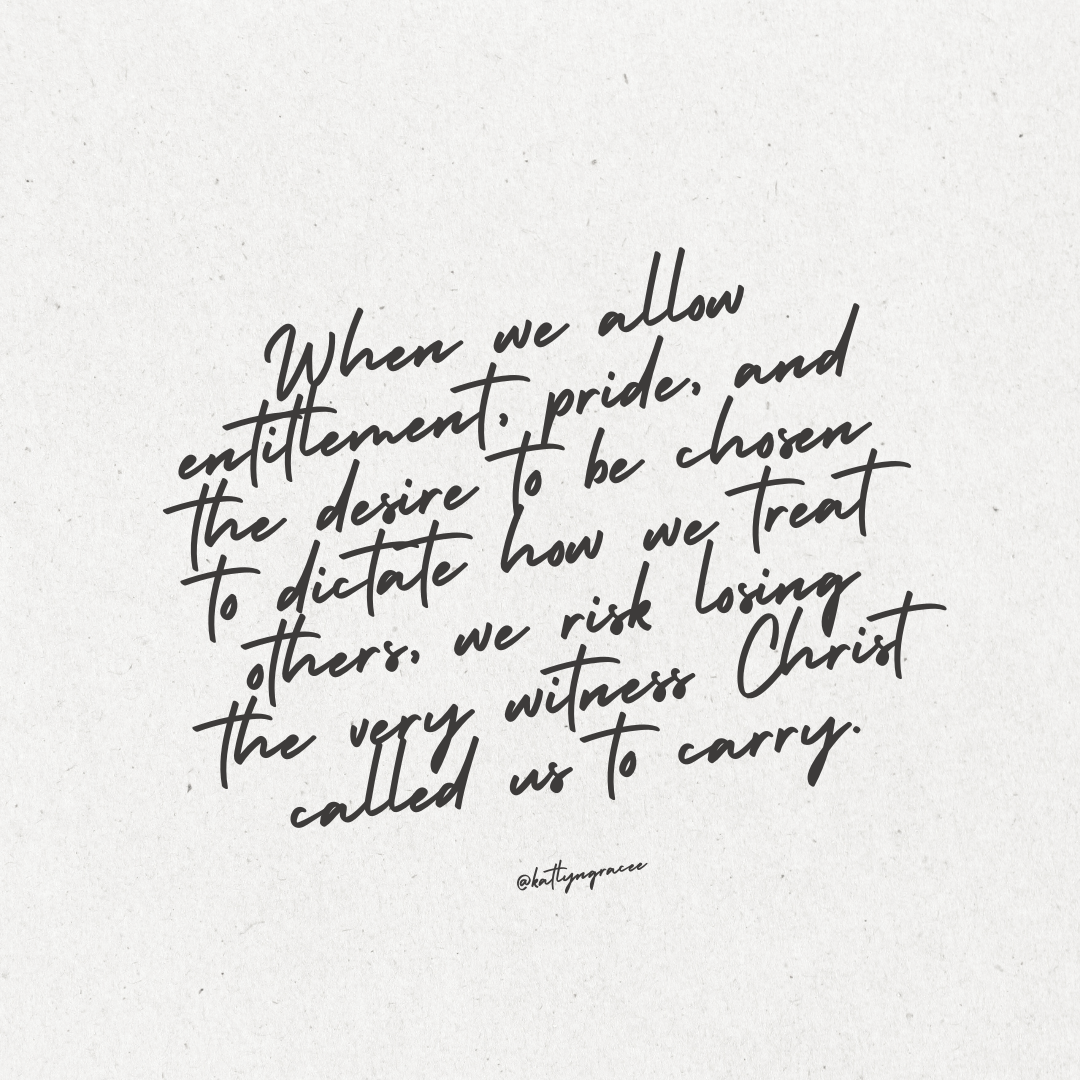 When we allow
entitlement, pride, and
the desire to be chosen
to dictate how we treat
others, we risk losing
the very witness Christ
called us to carry.
@katlyngracee